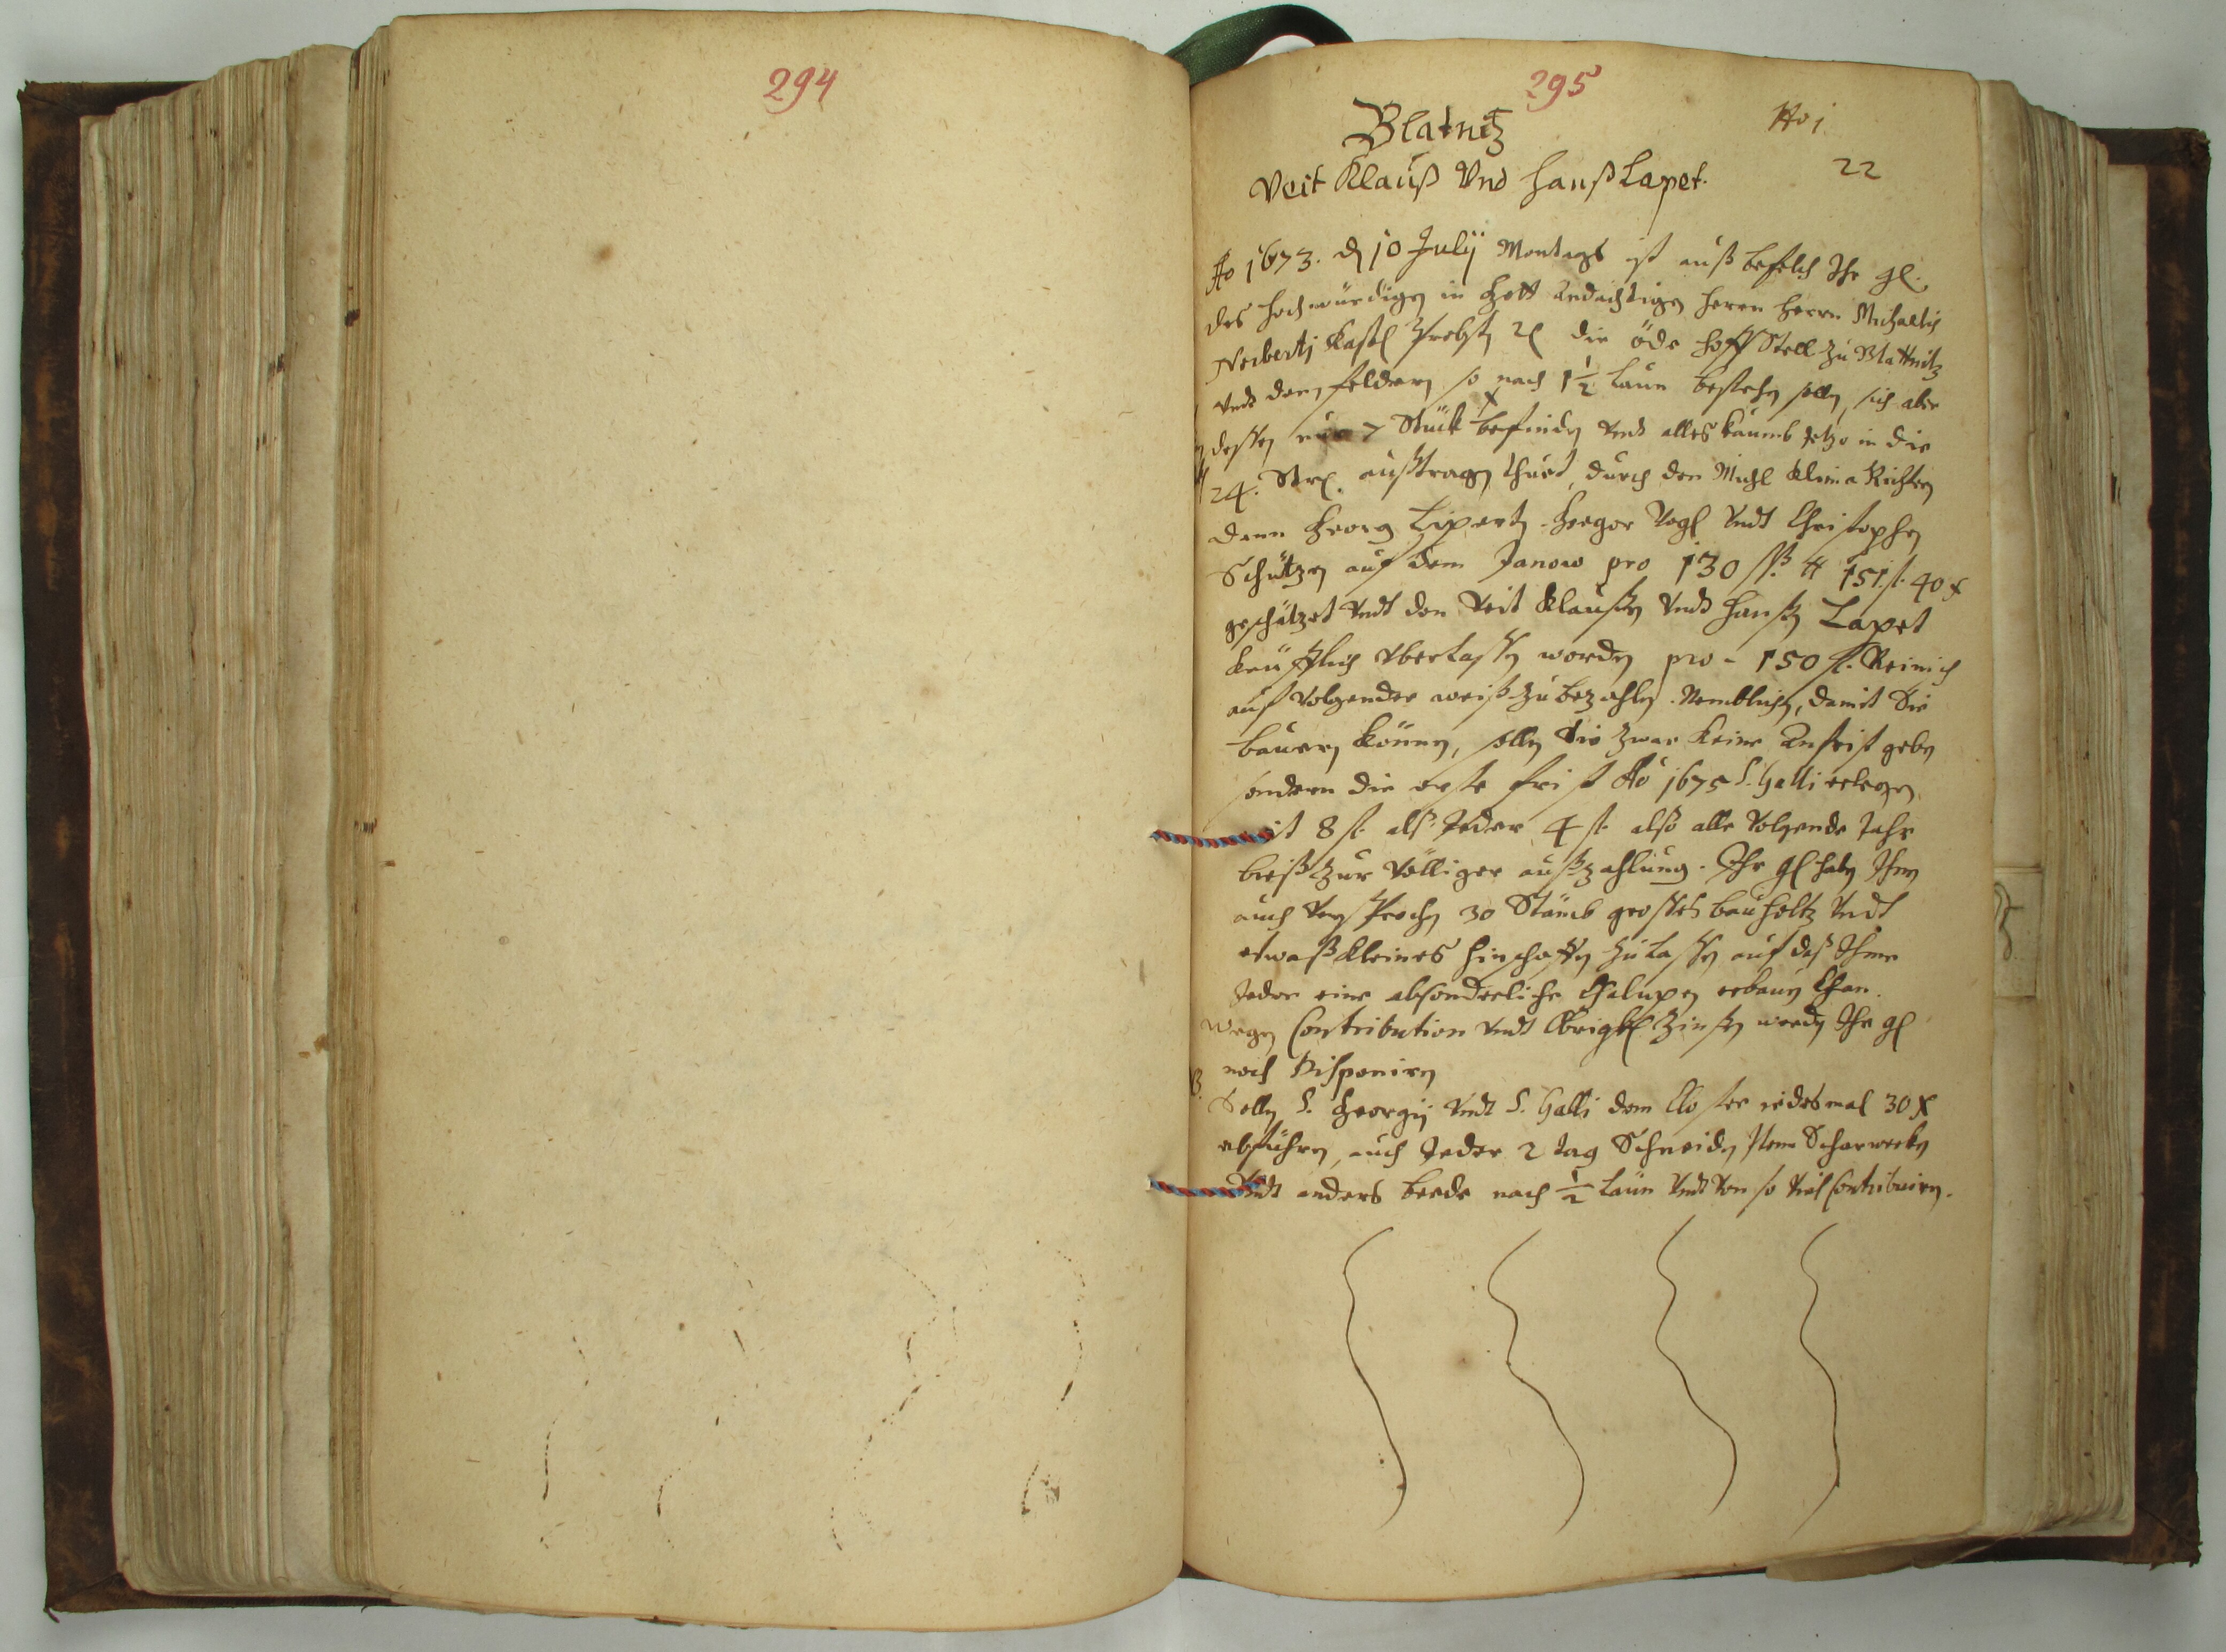 294
295
Blatnitz
No 1
Veit Klauß Vnd Hanß Lapet.
22
Ao 1673. den 10 Julÿ Montags ist auß befelch Ihr gl.
des hochwürdigen in Gott andächtigen herrn herrn Michaelis
Norberti Kastl Probsten die öde hoff Stell zu Blattnitz
Vndt dem feldern so nach 1½ Laun bestehn solln, sich aber
dessen nur 7 Stück befinden Vndt alles kaumb Jetzo in die
24. Str. außtragen thuet, durch den Michl Klima Richtern
dann Georg Lipert, Gregor Vogl Vndt Christophen
Schützen auf dem Janow pro 130 ßß. 151 fl. 40 x
geschätzet Vndt den Veit Klaußen Vndt Hanßen Lapet
keüfflich überlassen worden pro - 150 fl. Reinisch
auf Volgender weiß zubezahlen. Nemblichen, damit Sie
bauen können, solln Sie zwar keine Anfrist geben
sondern die erste frist Ao 1675 S. Galli erlegen
mit 8 fl. als Jeder 4 fl. also alle Volgende Jahr
bieß zur Völliger außzahlung. Ihr gl haben Ihnen
auch Versprochen 30 Stämb grosses bauholtz Vndt
etwaß kleines hinschaffen zu lassen auf daß Ihme
Jeder eine absonderliche Chalupen erbauen khan.
Wegen Contribution Vndt Obrigk. Zinßen werden Ihr gl
noch Disponiren
Solln S. Georgÿ Vndt S. Galli dem Closter iedesmal 30 x
abführen, auch Jeder 2 tag Schneiden Item Scharwerken
Vndt anders beede nach ½ Laun Vndt Von so Viel Contribuiren.